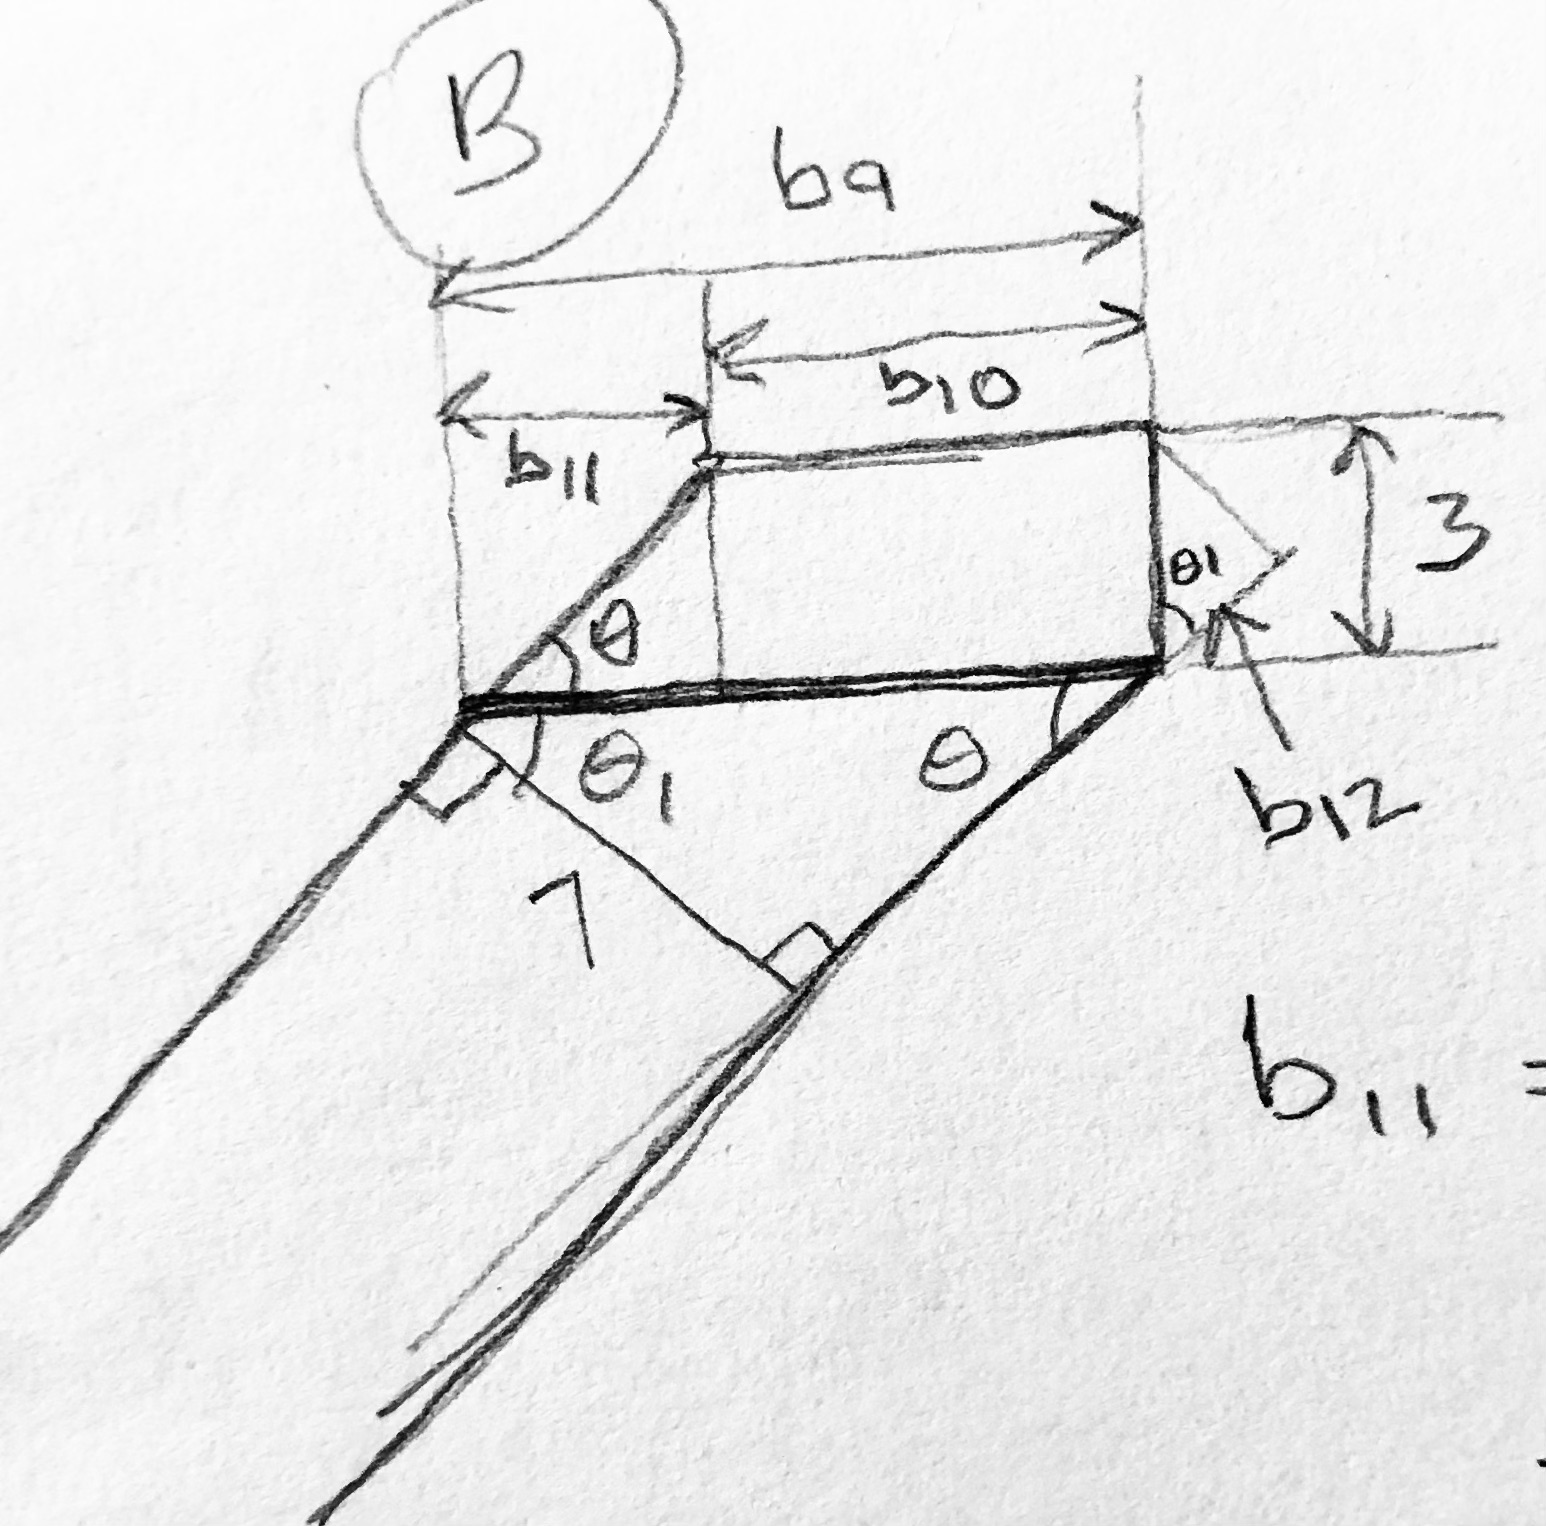 B
b9
b10
b11
3
θ1
θ
θ1
θ
b12
7
b11 =